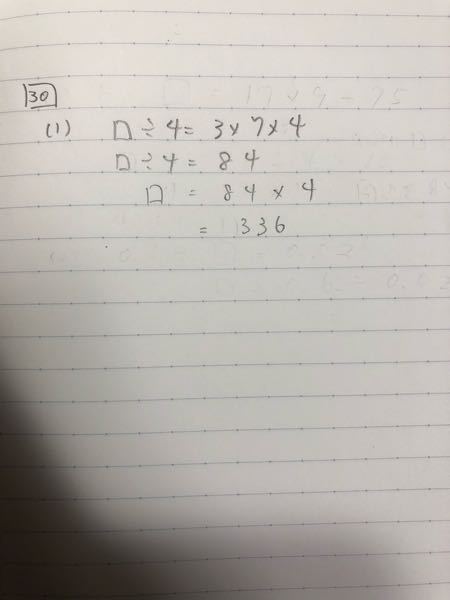 30
(1) □ ÷ 4 = 3 × 7 × 4
□ ÷ 4 = 84
□ = 84 × 4
= 336